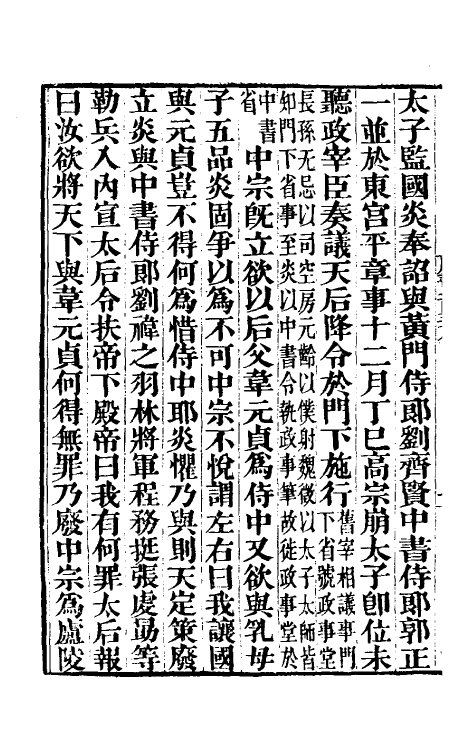 太子監國炎奉詔與黃門侍郎劉齊賢中書侍郎郭正
一並於東宮平章事十二月丁巳高宗崩太子卽位未
聽政宰臣奏議天后降令於門下施行
舊宰相議事門
下省號政事堂
長孫无忌以司空房元齡以僕射魏徵以太子太師皆
知門下省事至炎以中書令執政事筆故徙政事堂於
中書
省
中宗旣立欲以后父韋元貞爲侍中又欲與乳母
子五品炎固爭以爲不可中宗不悅謂左右曰我讓國
與元貞豈不得何爲惜侍中耶炎懼乃與則天定策廢
立炎與中書侍郎劉禕之羽林將軍程務挺張虔勗等
勒兵入內宣太后令扶帝下殿帝曰我有何罪太后報
曰汝欲將天下與韋元貞何得無罪乃廢中宗爲廬陵